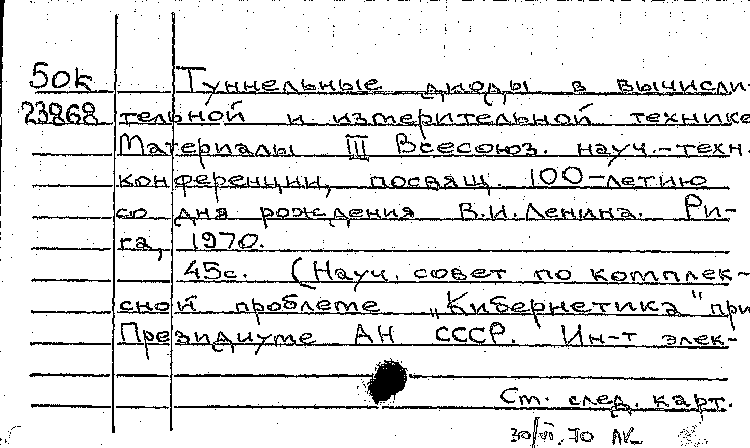 50к Туннельные диоды в вычисли-
23868 тельной и измерительной технике
Материалы III Всесоюз. науч.-техн.
конференции, посвящ. 100-летию
со дня рождения В.И.Ленина. Ри-
га, 1970.
45с. (Науч. совет по комплек-
сной проблеме „Кибернетика" при
Президиуме АН СССР. Ин-т элек-
См. след. карт.
30/VI.70 ЛК